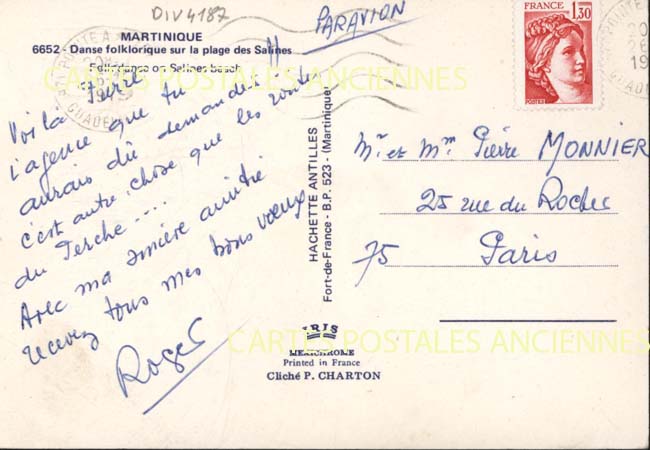 DIV4187
PAR AVION
MARTINIQUE
6652 - Danse folklorique sur la plage des Salines
Folk dance on Salines beach
Voilà Pierre
l'agence que tu
aurais dû demander!!
c'est autre chose que les routes
du Perche....
Avec ma sincère amitié
recevez tous mes bons voeux
Roger
HACHETTE ANTILLES
Fort-de-France - B.P. 523 - (Martinique)
FRANCE
1,30
POSTES
Mr et Mme Pierre MONNIER
25 rue du Rocher
75 Paris
CARTES POSTALES ANCIENNES
CARTES POSTALES ANCIENNES
IRIS
MEXICHROME
Printed in France
Cliché P. CHARTON